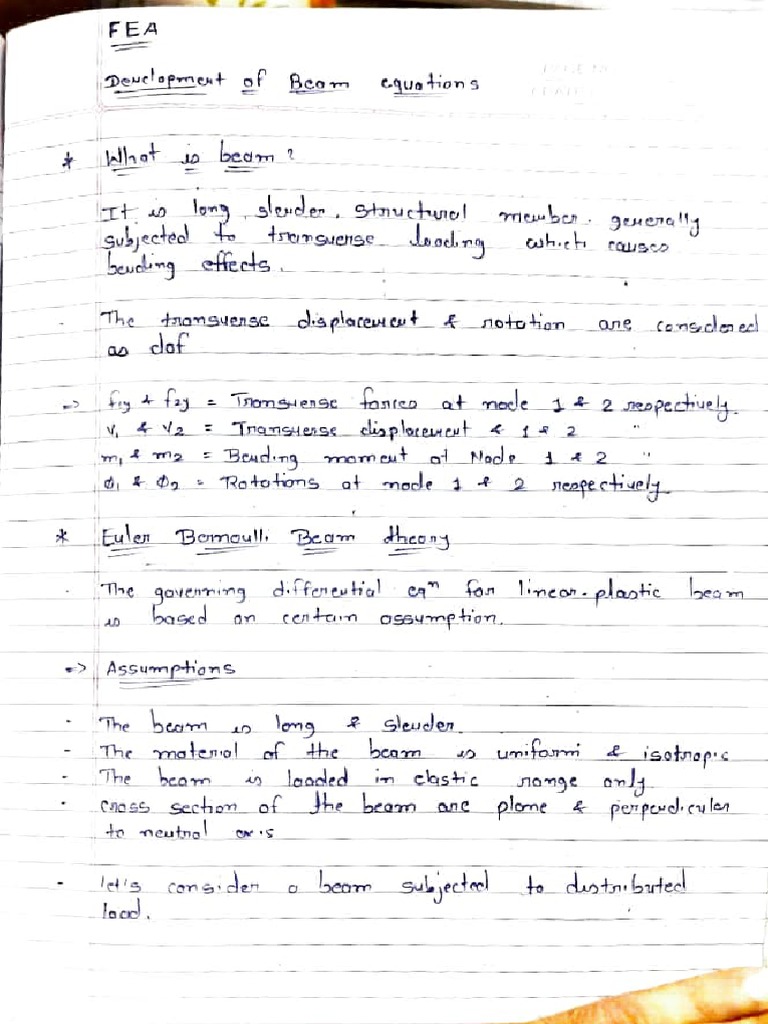 FEA
Development of Beam equations
* What is beam?
It is long, slender, structural member, generally
subjected to transverse loading which causes
bending effects.
- The transverse displacement & rotation are considered
as dof
=> f1y & f2y = Transverse forces at node 1 & 2 respectively.
v1 & v2 = Transverse displacement & 1 & 2 "
m1 & m2 = Bending moment at Node 1 & 2 "
ø1 & ø2 = Rotations at node 1 & 2 respectively
* Euler Bernoulli Beam theory
- The governing differential eqn for linear-plastic beam
is based on certain assumption.
=> Assumptions
- The beam is long & slender.
- The material of the beam is uniform & isotropic
- The beam is loaded in elastic range only
- cross section of the beam are plane & perpendicular
to neutral axis
- let's consider a beam subjected to distributed
load.